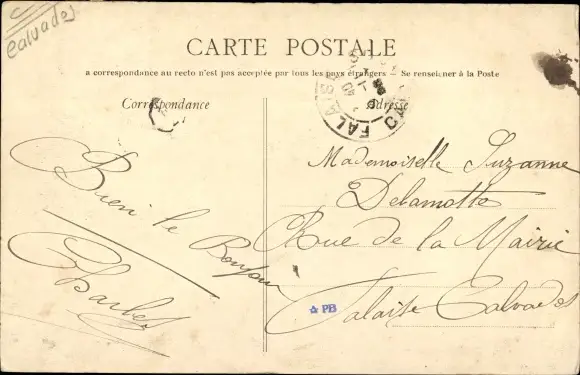 Calvados
CARTE POSTALE
a correspondance au recto n'est pas acceptée par tous les pays étrangers — Se renseigner à la Poste
Correspondance
Adresse
FALAISE
CALVADOS
Bien le Bonjour
Mademoiselle Suzanne
Delamotte
Rue de la Mairie
Falaise Calvados
PB